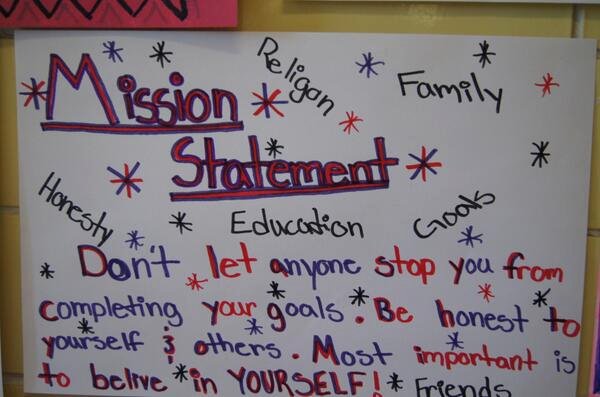 Religan
Family
Mission
Statement
Honesty
Education
Goals
Don't let anyone stop you from
completing your goals. Be honest to
yourself & others. Most important is
to belive in YOURSELF!
Friends